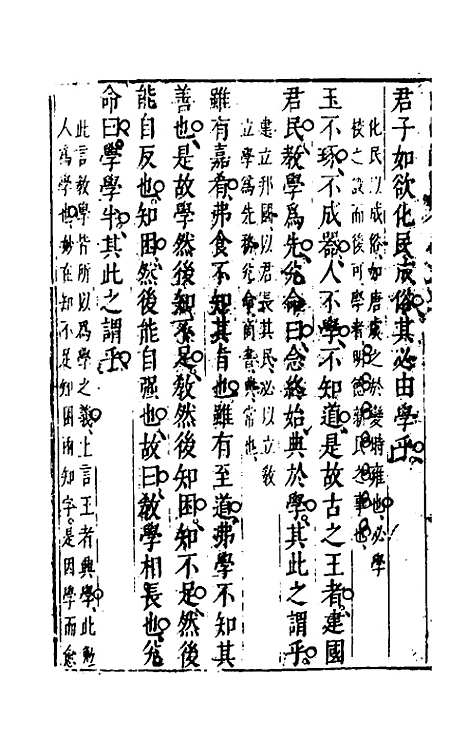 君子如欲化民成俗其必由學乎
化民以成俗如唐虞之於變時雍也必學
校之設而後可學者明德新民之事也
玉不琢不成器人不學不知道是故古之王者建國
君民教學爲先兊命曰念終始典於學其此之謂乎
建立邦國以君長其民必以立敎
立學爲先務兊命商書典常也
雖有嘉肴弗食不知其旨也雖有至道弗學不知其
善也是故學然後知不足敎然後知困知不足然後
能自反也知困然後能自强也故曰敎學相長也兊
命曰學學半其此之謂乎
此言敎學皆所以爲學之義上言王者典學此勉
人爲學也妙在知不足知困兩知字是因學而愈